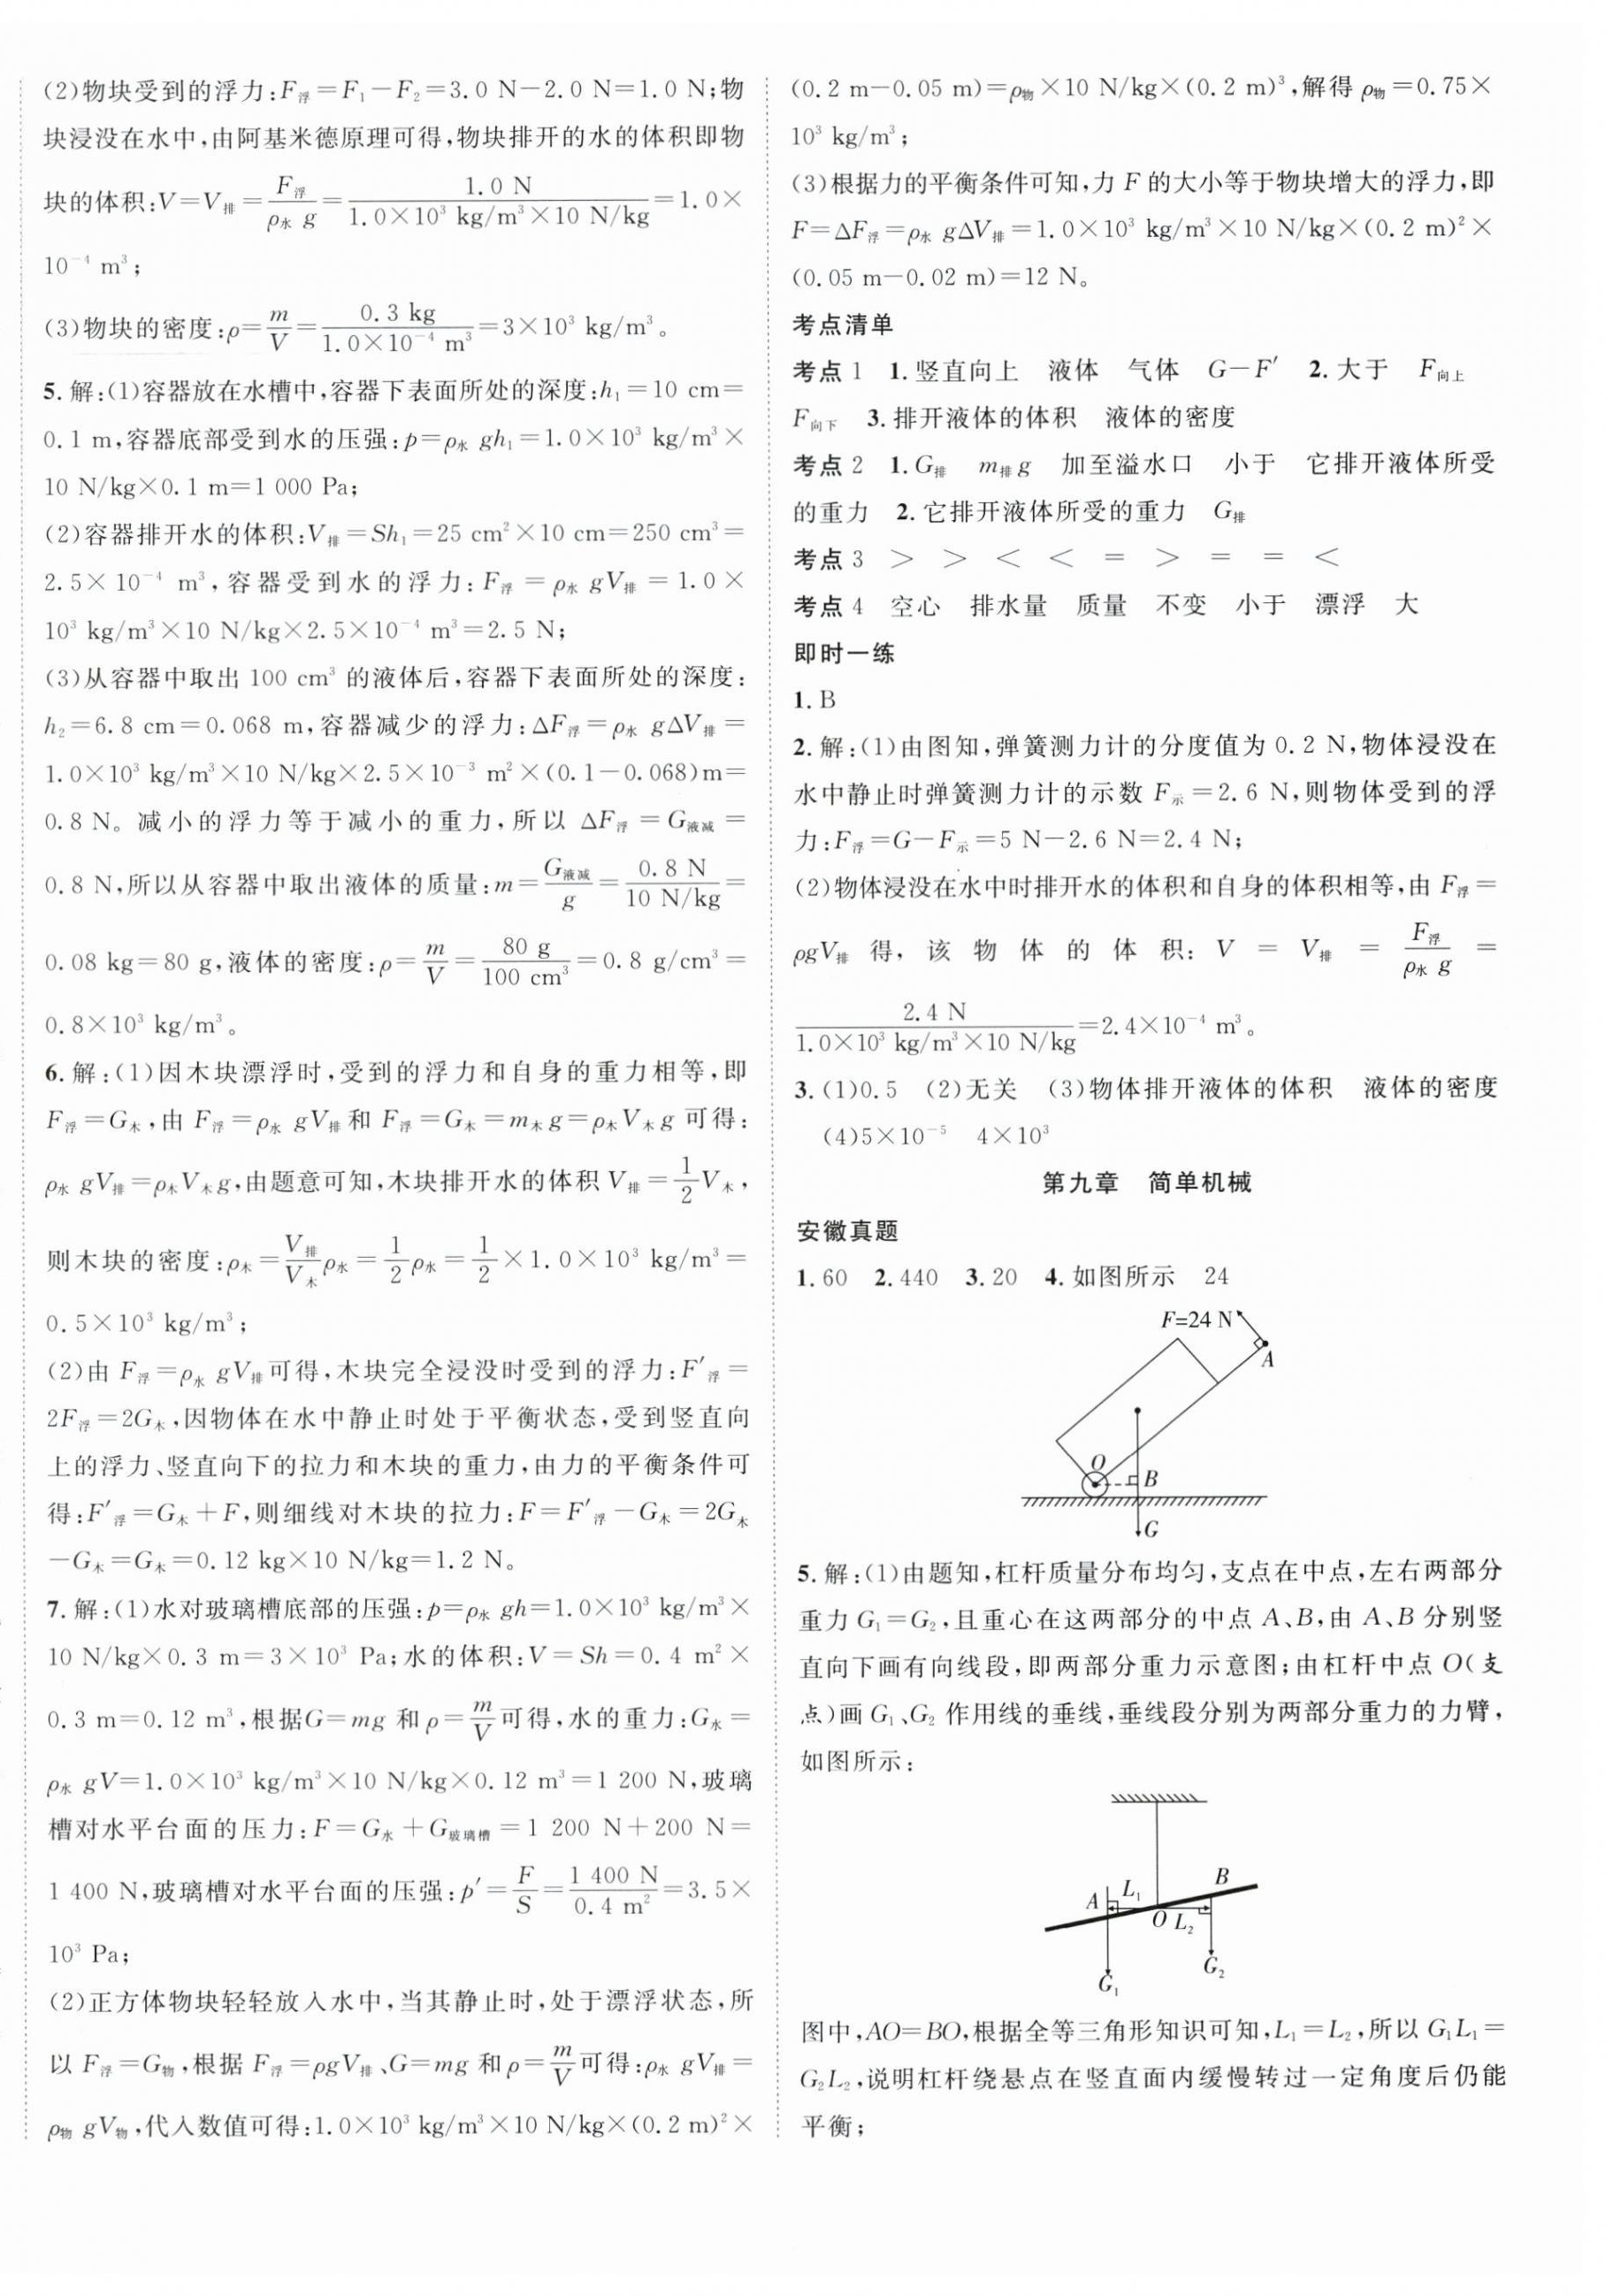 (2)物块受到的浮力:F浮=F₁-F₂=3.0 N-2.0 N=1.0 N;物
块浸没在水中,由阿基米德原理可得,物块排开的水的体积即物
块的体积:V=V排=F浮/(ρ水 g)=1.0 N/(1.0×10³ kg/m³×10 N/kg)=1.0×
10⁻⁴ m³;
(3)物块的密度:ρ=m/V=0.3 kg/(1.0×10⁻⁴ m³)=3×10³ kg/m³。
5.解:(1)容器放在水槽中,容器下表面所处的深度:h₁=10 cm=
0.1 m,容器底部受到水的压强:p=ρ水 gh₁=1.0×10³ kg/m³×
10 N/kg×0.1 m=1 000 Pa;
(2)容器排开水的体积:V排=Sh₁=25 cm²×10 cm=250 cm³=
2.5×10⁻⁴ m³,容器受到水的浮力:F浮=ρ水 gV排=1.0×
10³ kg/m³×10 N/kg×2.5×10⁻⁴ m³=2.5 N;
(3)从容器中取出 100 cm³ 的液体后,容器下表面所处的深度:
h₂=6.8 cm=0.068 m,容器减少的浮力:ΔF浮=ρ水 gΔV排=
1.0×10³ kg/m³×10 N/kg×2.5×10⁻³ m²×(0.1-0.068)m=
0.8 N。减小的浮力等于减小的重力,所以 ΔF浮=G液减=
0.8 N,所以从容器中取出液体的质量:m=G液减/g=0.8 N/(10 N/kg)=
0.08 kg=80 g,液体的密度:ρ=m/V=80 g/(100 cm³)=0.8 g/cm³=
0.8×10³ kg/m³。
6.解:(1)因木块漂浮时,受到的浮力和自身的重力相等,即
F浮=G木,由 F浮=ρ水 gV排和 F浮=G木=m木g=ρ木V木g 可得:
ρ水 gV排=ρ木V木g,由题意可知,木块排开水的体积 V排=1/2 V木,
则木块的密度:ρ木=V排/V木 ρ水=1/2 ρ水=1/2×1.0×10³ kg/m³=
0.5×10³ kg/m³;
(2)由 F浮=ρ水 gV排可得,木块完全浸没时受到的浮力:F′浮=
2F浮=2G木,因物体在水中静止时处于平衡状态,受到竖直向
上的浮力、竖直向下的拉力和木块的重力,由力的平衡条件可
得:F′浮=G木+F,则细线对木块的拉力:F=F′浮-G木=2G木
-G木=G木=0.12 kg×10 N/kg=1.2 N。
7.解:(1)水对玻璃槽底部的压强:p=ρ水 gh=1.0×10³ kg/m³×
10 N/kg×0.3 m=3×10³ Pa;水的体积:V=Sh=0.4 m²×
0.3 m=0.12 m³,根据G=mg 和 ρ=m/V可得,水的重力:G水=
ρ水 gV=1.0×10³ kg/m³×10 N/kg×0.12 m³=1 200 N,玻璃
槽对水平台面的压力:F=G水+G玻璃槽=1 200 N+200 N=
1 400 N,玻璃槽对水平台面的压强:p′=F/S=1 400 N/(0.4 m²)=3.5×
10³ Pa;
(2)正方体物块轻轻放入水中,当其静止时,处于漂浮状态,所
以 F浮=G物,根据 F浮=ρgV排、G=mg 和 ρ=m/V可得:ρ水 gV排=
ρ物 gV物,代入数值可得:1.0×10³ kg/m³×10 N/kg×(0.2 m)²×
(0.2 m-0.05 m)=ρ物×10 N/kg×(0.2 m)³,解得 ρ物=0.75×
10³ kg/m³;
(3)根据力的平衡条件可知,力 F 的大小等于物块增大的浮力,即
F=ΔF浮=ρ水 gΔV排=1.0×10³ kg/m³×10 N/kg×(0.2 m)²×
(0.05 m-0.02 m)=12 N。
考点清单
考点 1 1.竖直向上 液体 气体 G-F′ 2.大于 F向上
F向下 3.排开液体的体积 液体的密度
考点 2 1.G排 m排g 加至溢水口 小于 它排开液体所受
的重力 2.它排开液体所受的重力 G排
考点 3 > > < < = > = = <
考点 4 空心 排水量 质量 不变 小于 漂浮 大
即时一练
1.B
2.解:(1)由图知,弹簧测力计的分度值为 0.2 N,物体浸没在
水中静止时弹簧测力计的示数 F示=2.6 N,则物体受到的浮
力:F浮=G-F示=5 N-2.6 N=2.4 N;
(2)物体浸没在水中时排开水的体积和自身的体积相等,由 F浮=
ρgV排 得,该物体的体积:V=V排=F浮/(ρ水 g)=
2.4 N/(1.0×10³ kg/m³×10 N/kg)=2.4×10⁻⁴ m³。
3.(1)0.5 (2)无关 (3)物体排开液体的体积 液体的密度
(4)5×10⁻⁵ 4×10³
第九章 简单机械
安徽真题
1.60 2.440 3.20 4.如图所示 24
F=24 N
A
O
B
G
5.解:(1)由题知,杠杆质量分布均匀,支点在中点,左右两部分
重力 G₁=G₂,且重心在这两部分的中点 A、B,由 A、B 分别竖
直向下画有向线段,即两部分重力示意图;由杠杆中点 O(支
点)画 G₁、G₂ 作用线的垂线,垂线段分别为两部分重力的力臂,
如图所示:
B
A L₁
O L₂
G₂
G₁
图中,AO=BO,根据全等三角形知识可知,L₁=L₂,所以 G₁L₁=
G₂L₂,说明杠杆绕悬点在竖直面内缓慢转过一定角度后仍能
平衡;